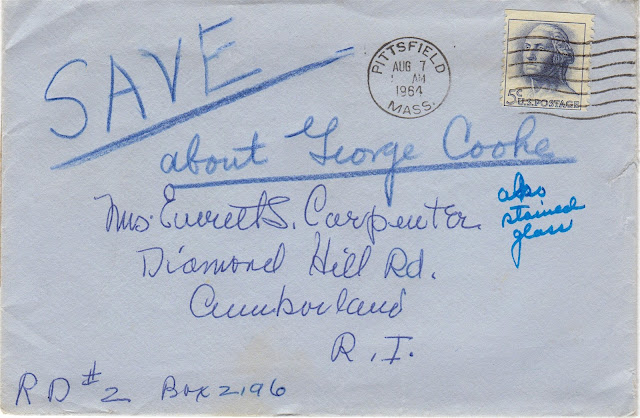 SAVE
PITTSFIELD
AUG 7
AM
1964
MASS.
5¢
U.S. POSTAGE
about George Cooke
Mrs. Everett S. Carpenter
Diamond Hill Rd.
Cumberland
R.I.
also
stained
glass
RD #2 Box 2196